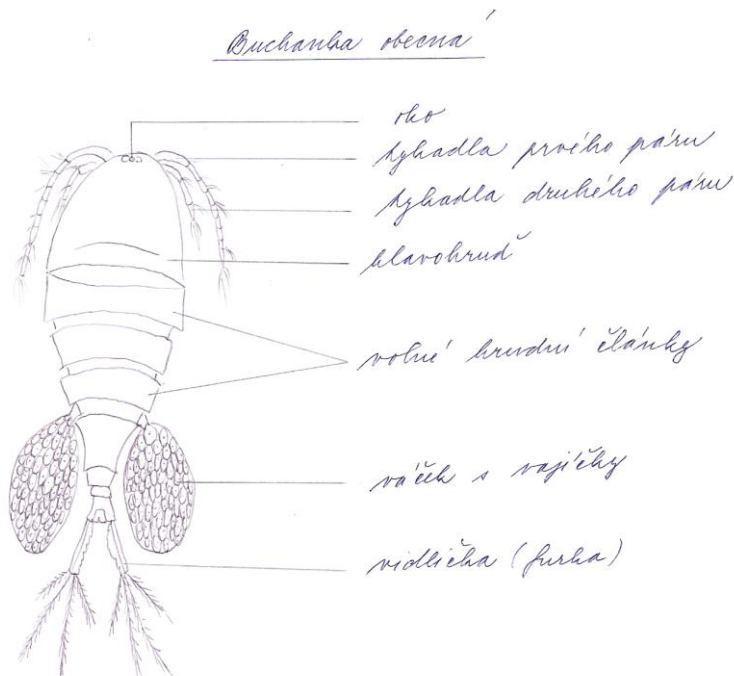 Buchanka obecná
oko
tykadla prvého páru
tykadla druhého páru
hlavohruď
volné hrudní články
váček s vajíčky
vidlička (furka)